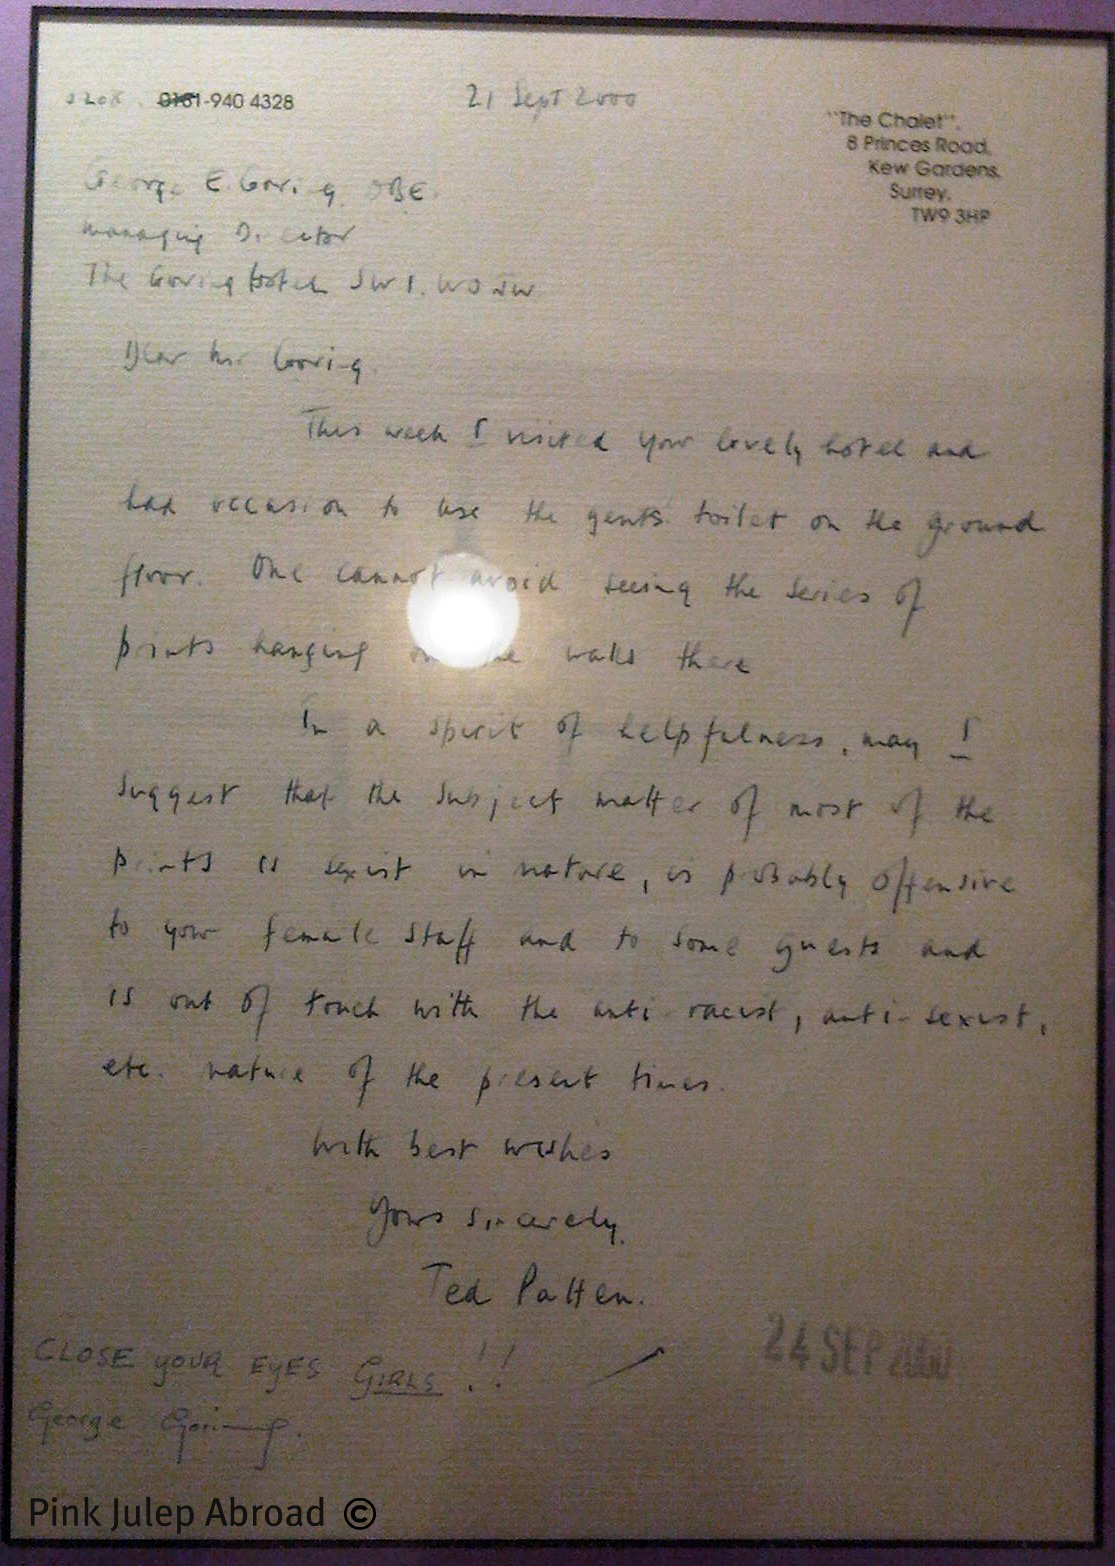 0208 0181-940 4328
21 Sept 2000
"The Chalet",
8 Princes Road,
Kew Gardens,
Surrey,
TW9 3HP
George E. Goring OBE.
Managing Director
The Goring Hotel SW1. W0JW
Dear Mr. Goring
This week I visited your lovely hotel and
had occasion to use the gents toilet on the ground
floor. One cannot avoid seeing the series of
prints hanging on the walls there
In a spirit of helpfulness, may I
suggest that the subject matter of most of the
prints is sexist in nature, is probably offensive
to your female staff and to some guests and
is out of touch with the anti racist, anti-sexist,
etc. nature of the present times.
With best wishes
Yours sincerely,
Ted Patten.
CLOSE YOUR EYES GIRLS!!
George Goring.
24 SEP 2000
Pink Julep Abroad ©